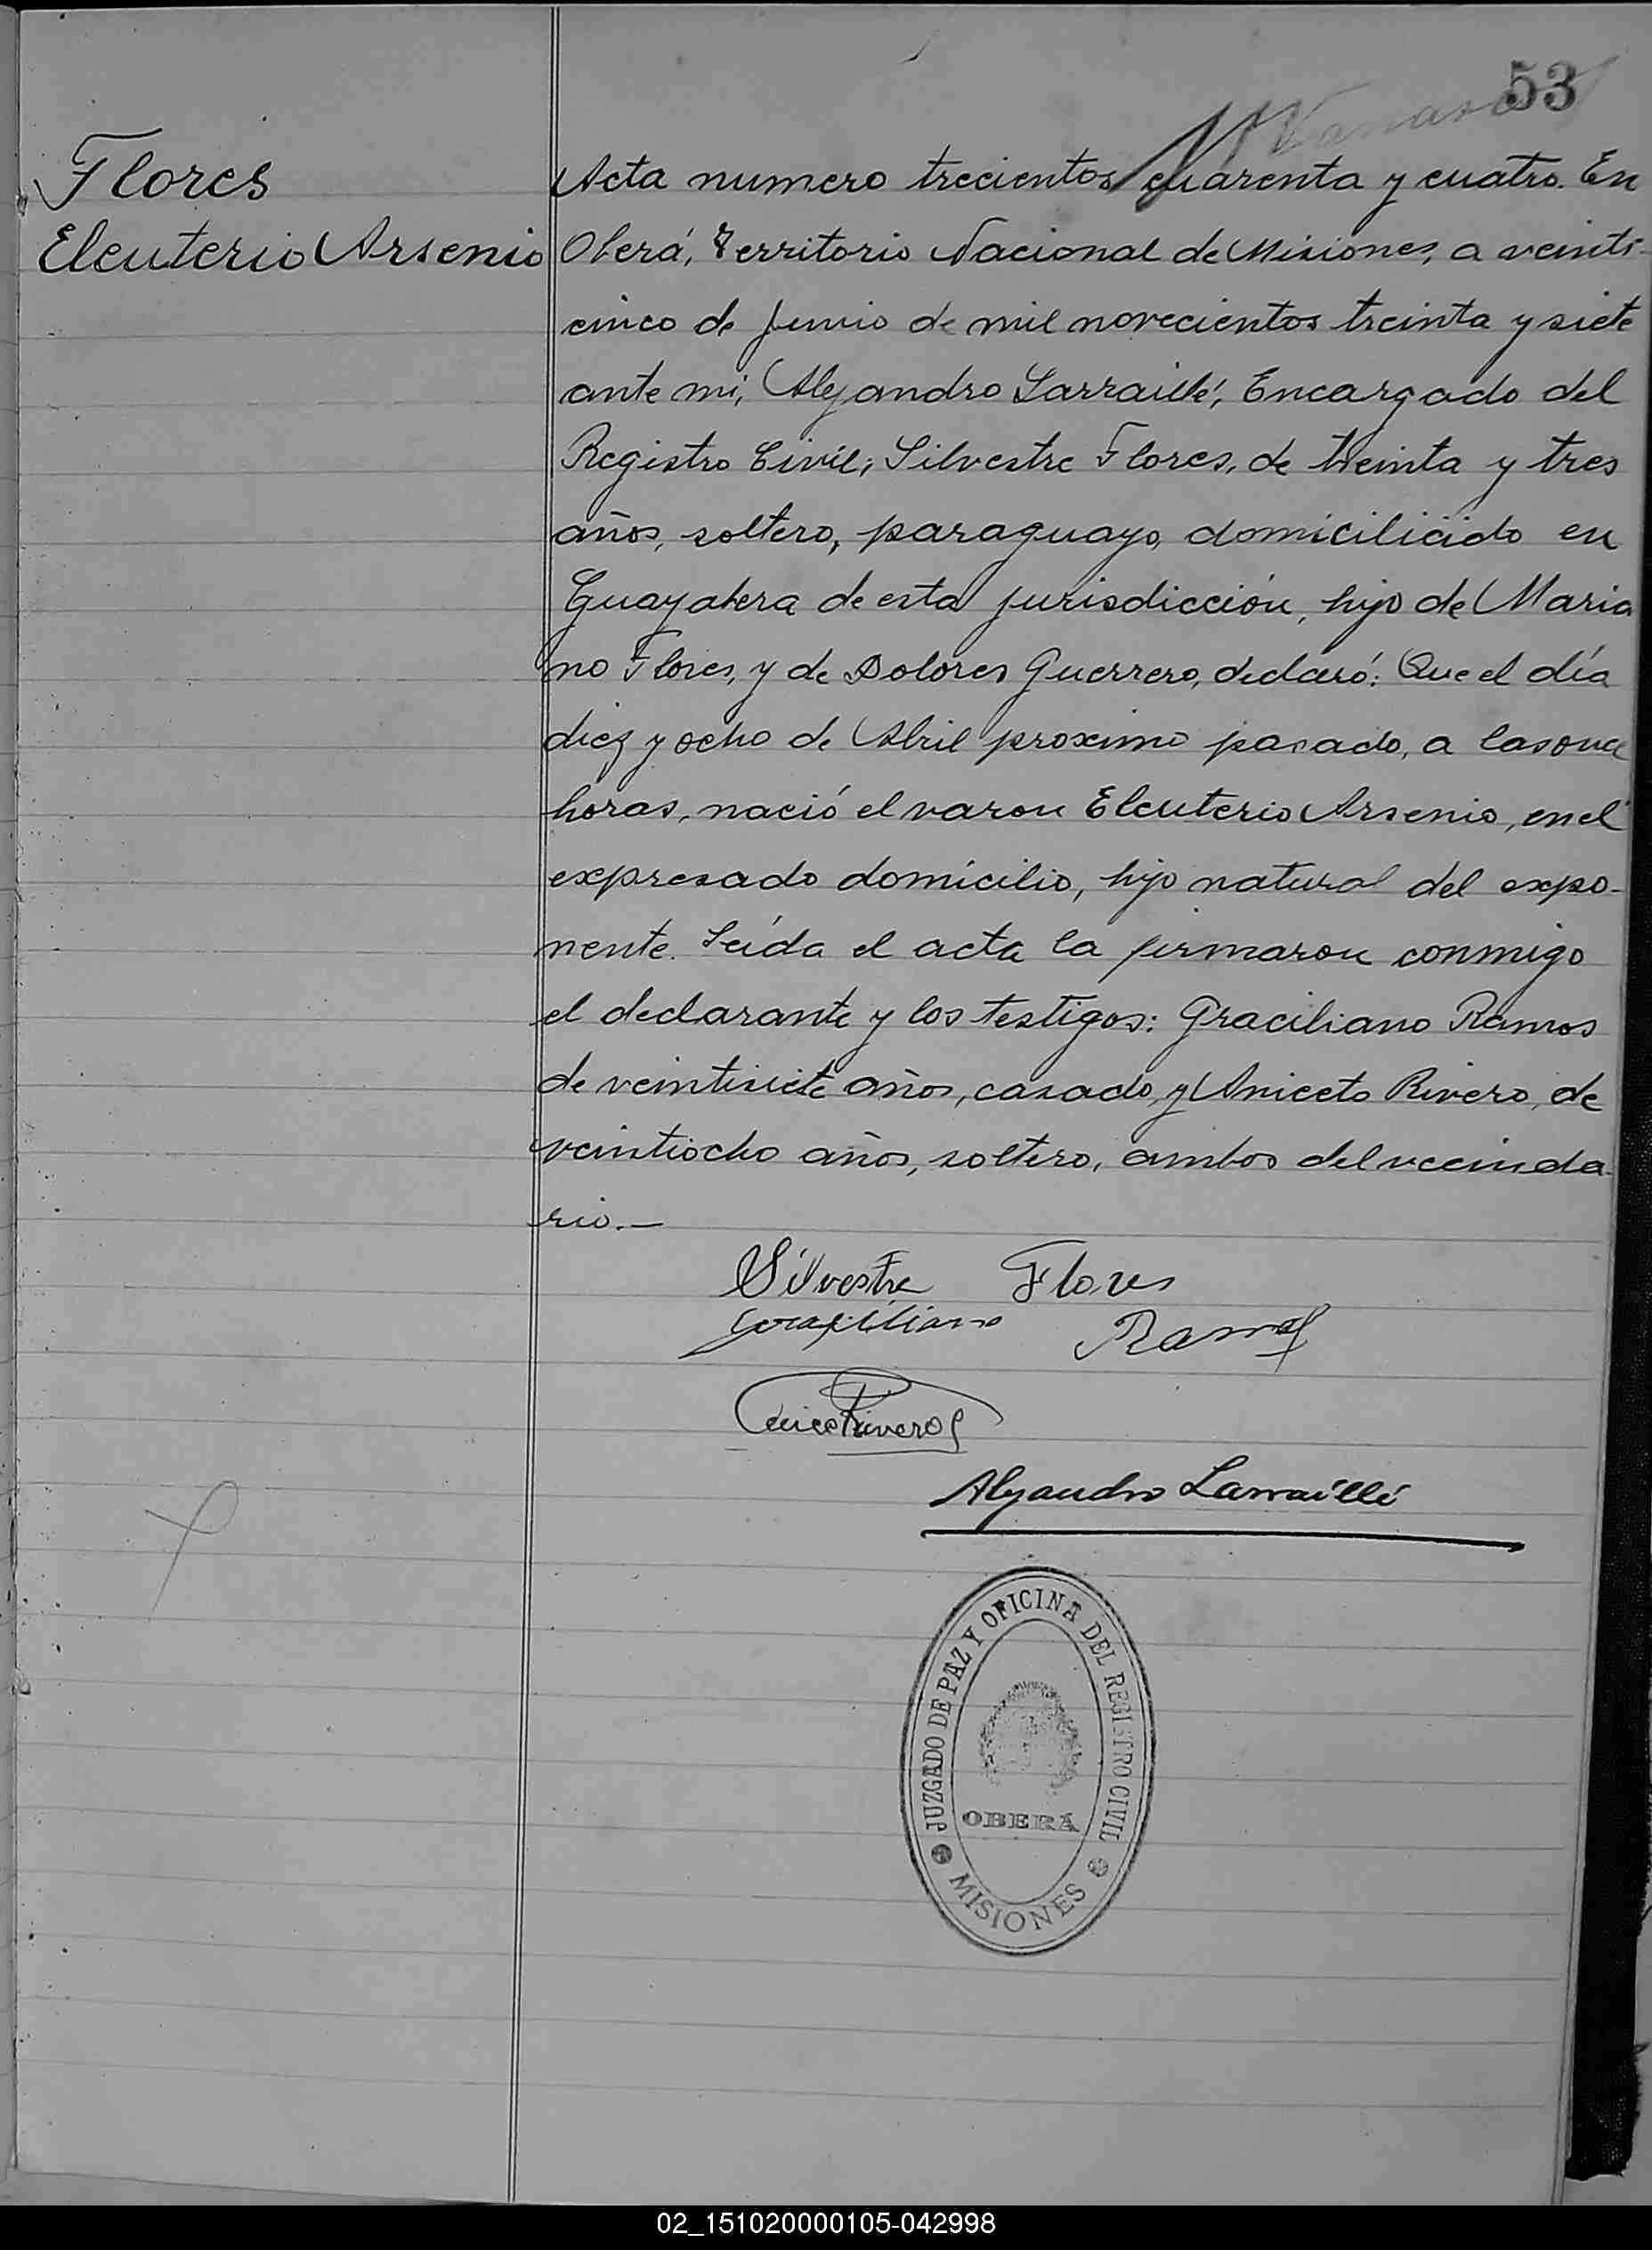 53
Flores
Eleuterio Arsenio
Acta numero trecientos cuarenta y cuatro. En
Oberá, Territorio Nacional de Misiones, a veinti-
cinco de Junio de mil novecientos treinta y siete
ante mi, Alejandro Larraillé, Encargado del
Registro Civil; Silvestre Flores, de treinta y tres
años, soltero, paraguayo, domiciliado en
Guayabera de esta jurisdicción, hijo de Maria
no Flores, y de Dolores Guerrero, declaró: Que el día
diez y ocho de Abril proximo pasado, a las once
horas, nació el varon Eleuterio Arsenio, en el
expresado domicilio, hijo natural del expo-
nente. Leída el acta la firmaron conmigo
el declarante y los testigos: Graciliano Ramos
de veintisiete años, casado, y Aniceto Rivero, de
veintiocho años, soltero, ambos del vecinda-
rio.—
Silvestre Flores
Ramos
Riveros
Alejandro Larraillé
JUZGADO DE PAZ Y OFICINA DEL REGISTRO CIVIL
OBERÁ
MISIONES
02_151020000105-042998